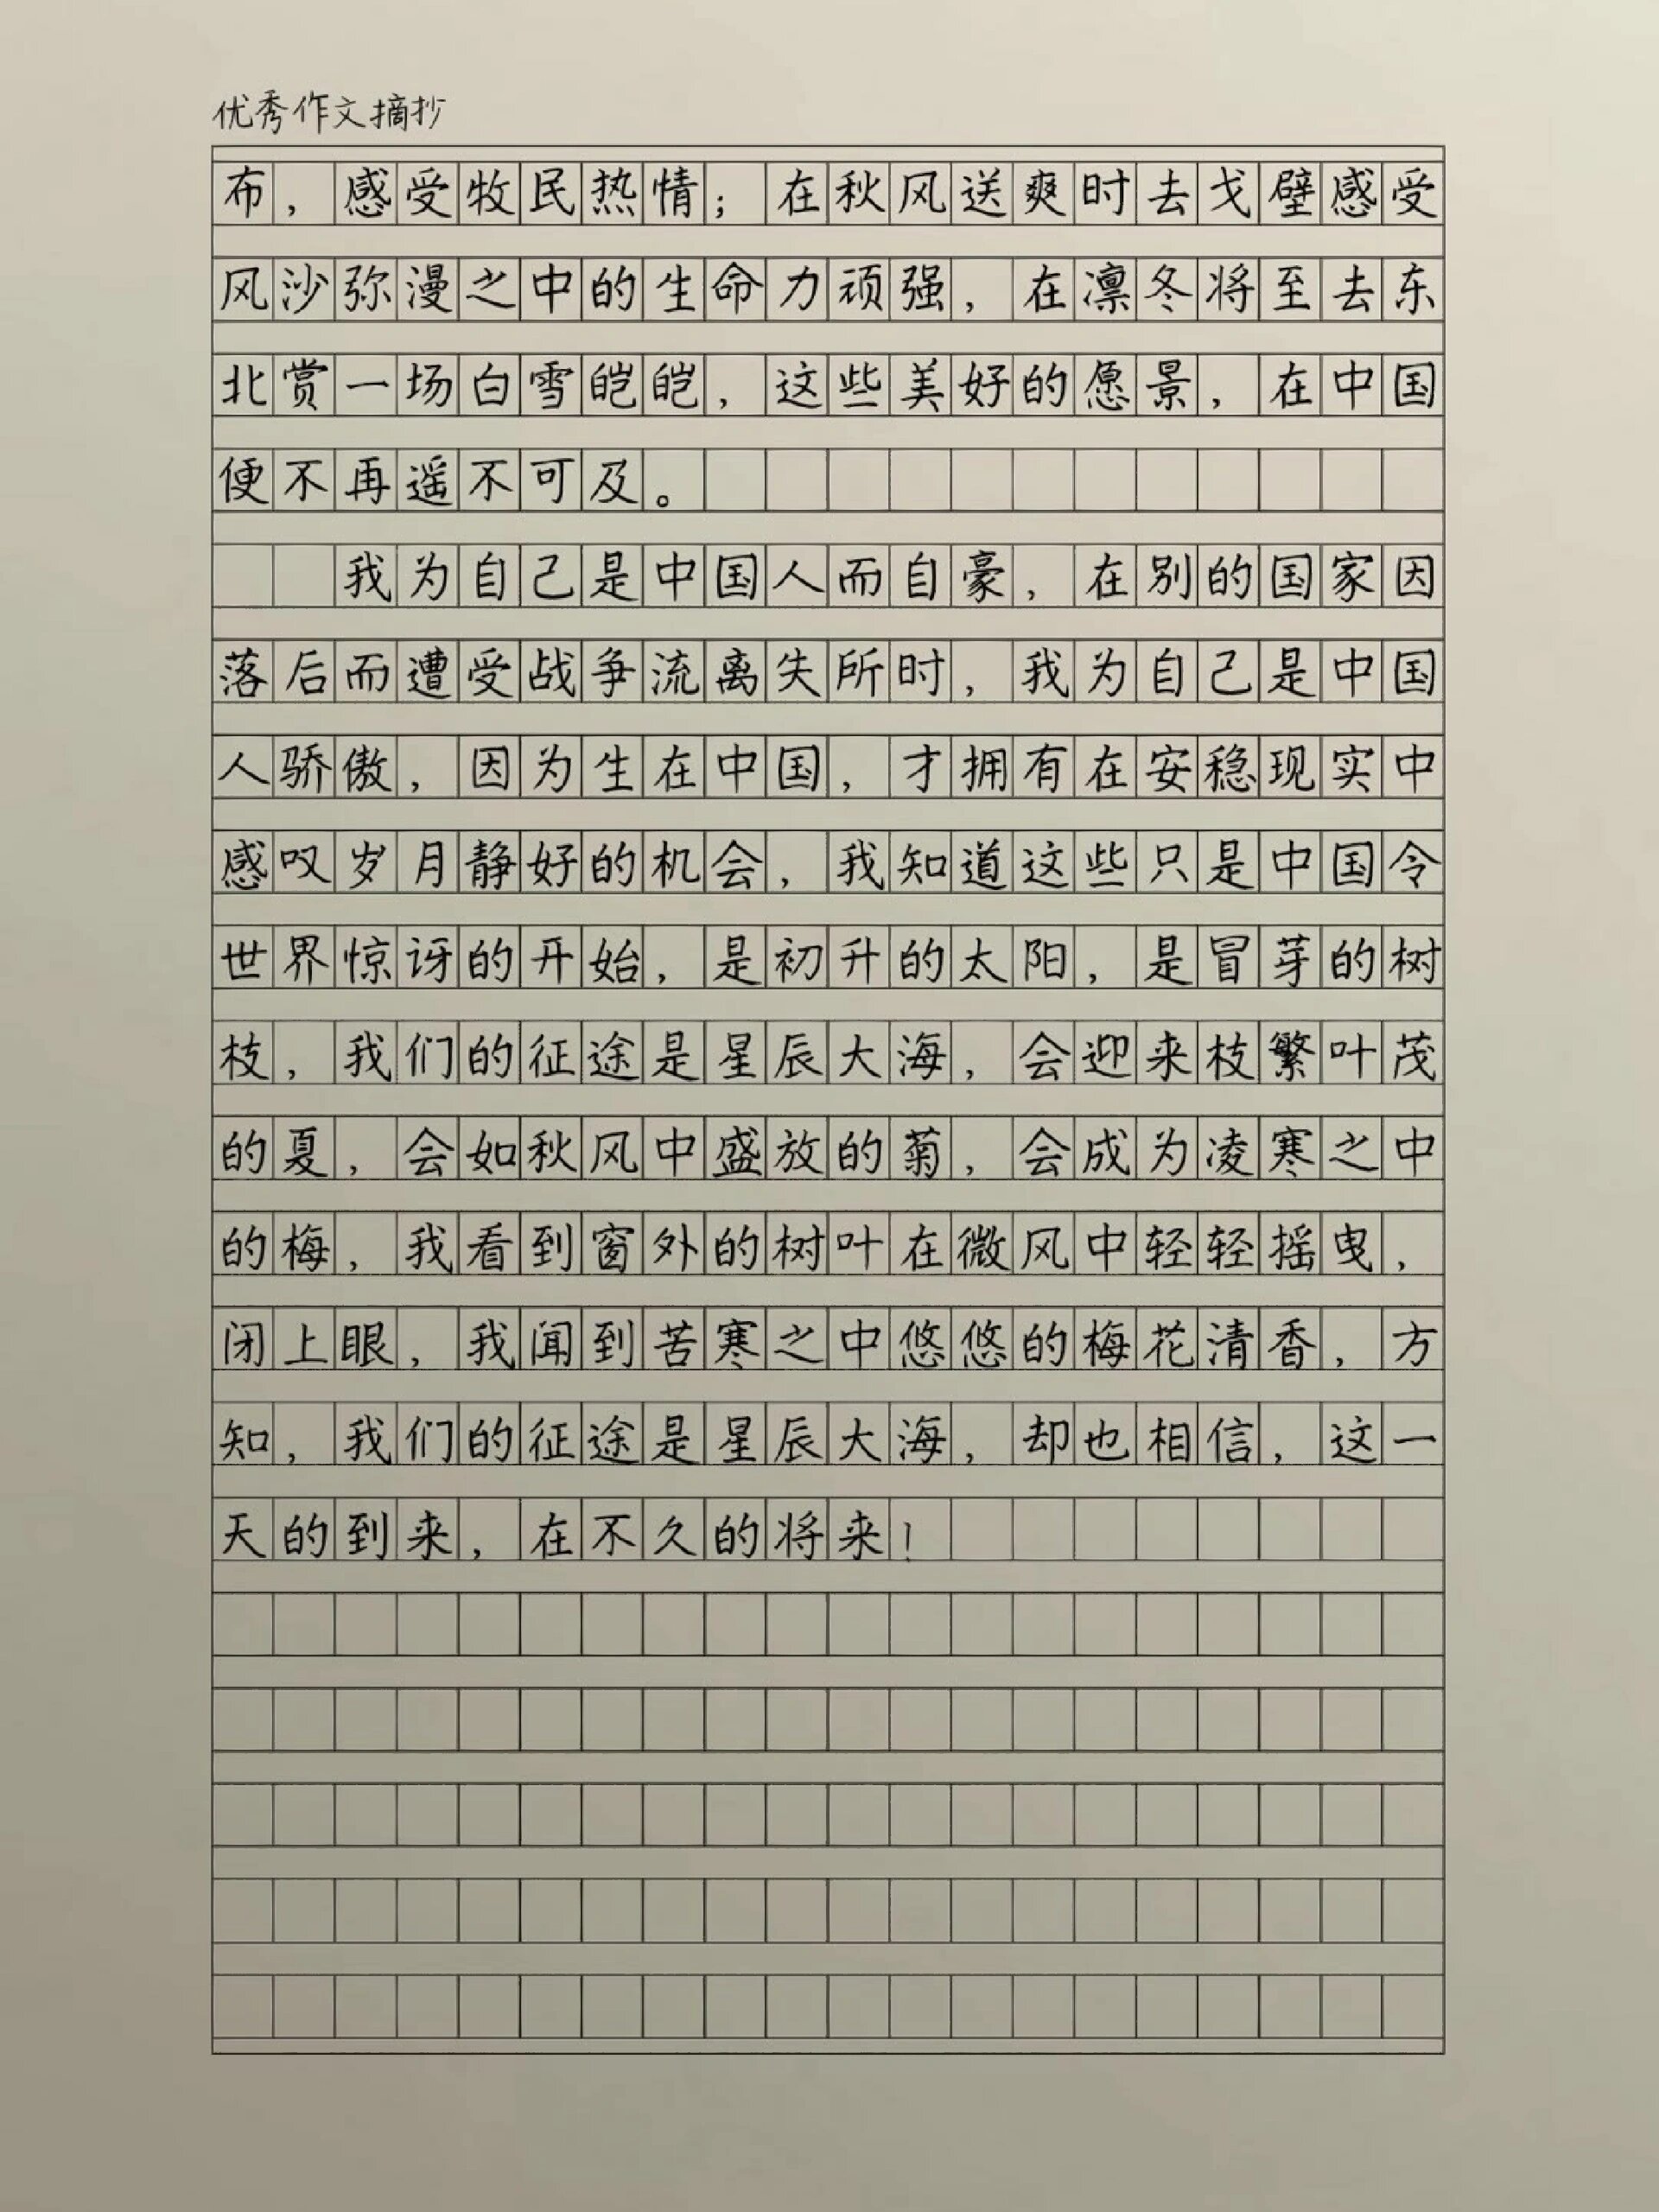 优秀作文摘抄
布，感受牧民热情；在秋风送爽时去戈壁感受
风沙弥漫之中的生命力顽强，在凛冬将至去东
北赏一场白雪皑皑，这些美好的愿景，在中国
便不再遥不可及。
我为自己是中国人而自豪，在别的国家因
落后而遭受战争流离失所时，我为自己是中国
人骄傲，因为生在中国，才拥有在安稳现实中
感叹岁月静好的机会，我知道这些只是中国令
世界惊讶的开始，是初升的太阳，是冒芽的树
枝，我们的征途是星辰大海，会迎来枝繁叶茂
的夏，会如秋风中盛放的菊，会成为凌寒之中
的梅，我看到窗外的树叶在微风中轻轻摇曳，
闭上眼，我闻到苦寒之中悠悠的梅花清香，方
知，我们的征途是星辰大海，却也相信，这一
天的到来，在不久的将来！